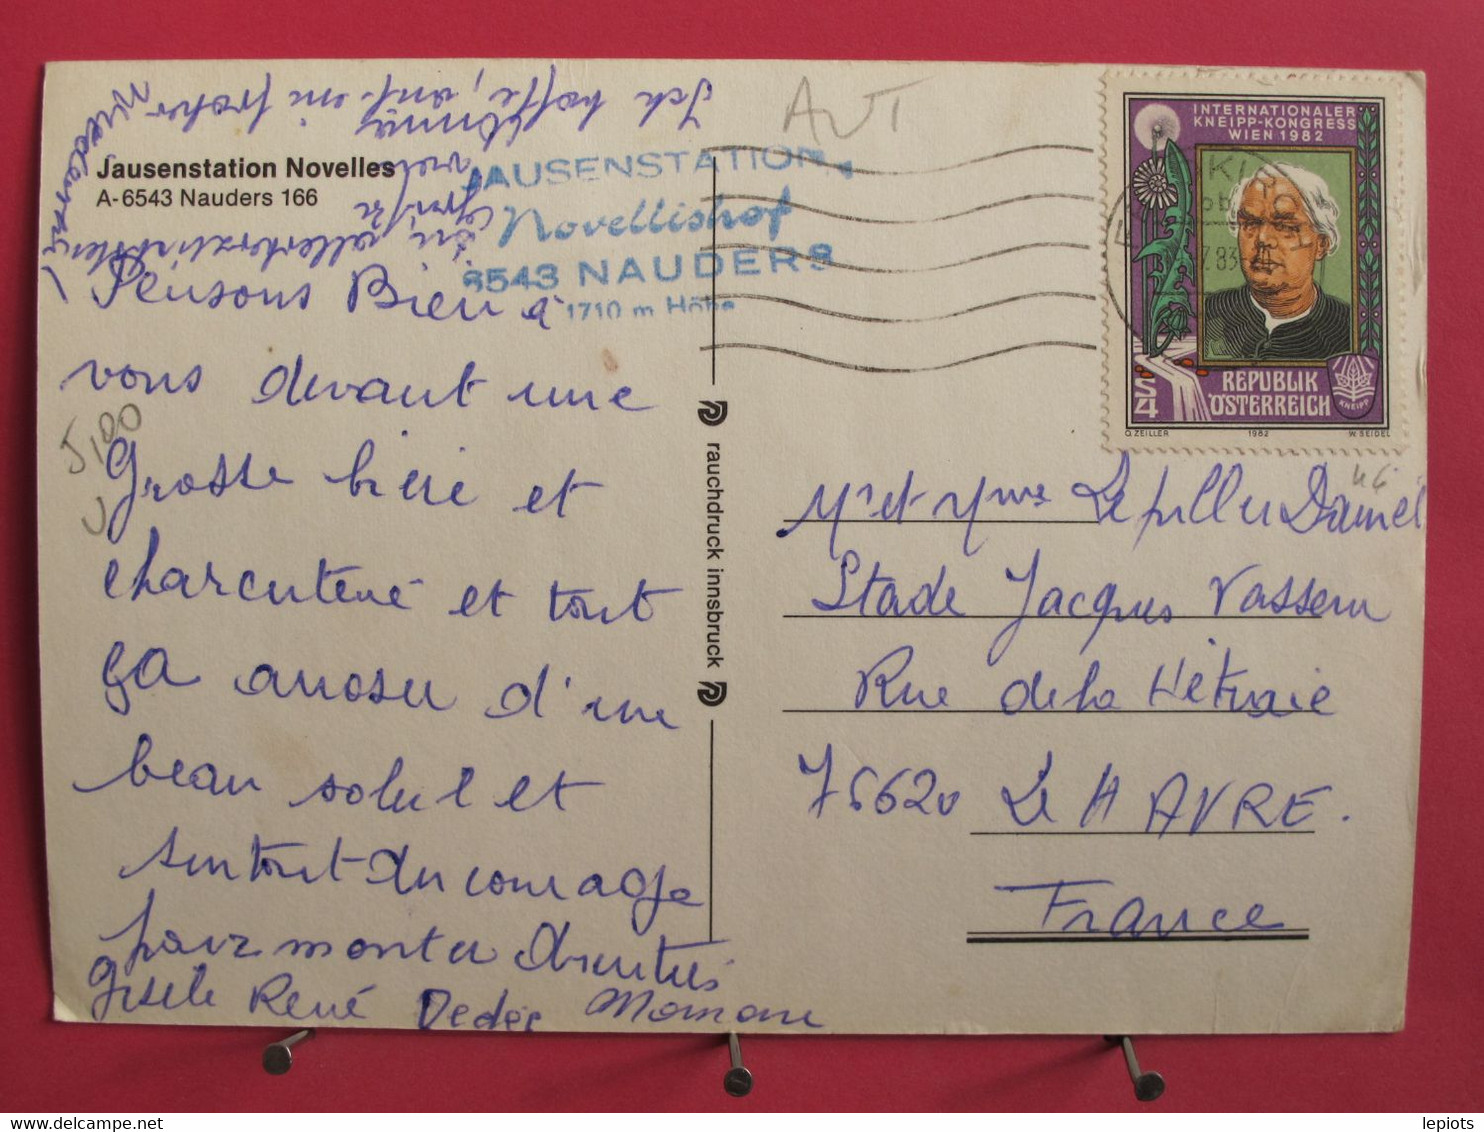 Jausenstation Novelles
A-6543 Nauders 166
Ich hoffe, auf ein frohes
Wiedersehn
viele
Grüße
JAUSENSTATION
Novellishof
6543 NAUDERS
1710 m Höhe
AUT
Pensons Bien à
vous devant une
Grosse bière et
charcuterie et tout
ça arroser d'une
beau soleil et
surtout du courage
pour monter
Gisele René Dedée Maman
5,00
rauchdruck innsbruck
INTERNATIONALER
KNEIPP-KONGRESS
WIEN 1982
REPUBLIK
ÖSTERREICH
S4
KNEIPP
O. ZEILLER 1982 W. SEIDEL
Mr et Mme Daniel
Stade Jacques
Rue de la
76620 Le HAVRE.
France
lepiots